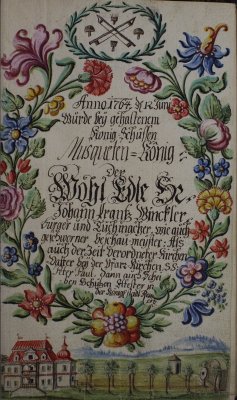 Anno 1767 d 12 Juny
Würde beÿ gehaltenem
König Schüssen
Musqueten=König:
Der
Wohl Edle Hr
Johann Frantz Winckler
burger und Tuchmacher, wie auch
geschworner beschau meister: Als
auch der Zeit Verordneter Kirchen
Vatter beÿ der Pfarz Kirchen S:S:
Peter Paul, Dann
ben Schüzen Eltester in
der König: Stadt